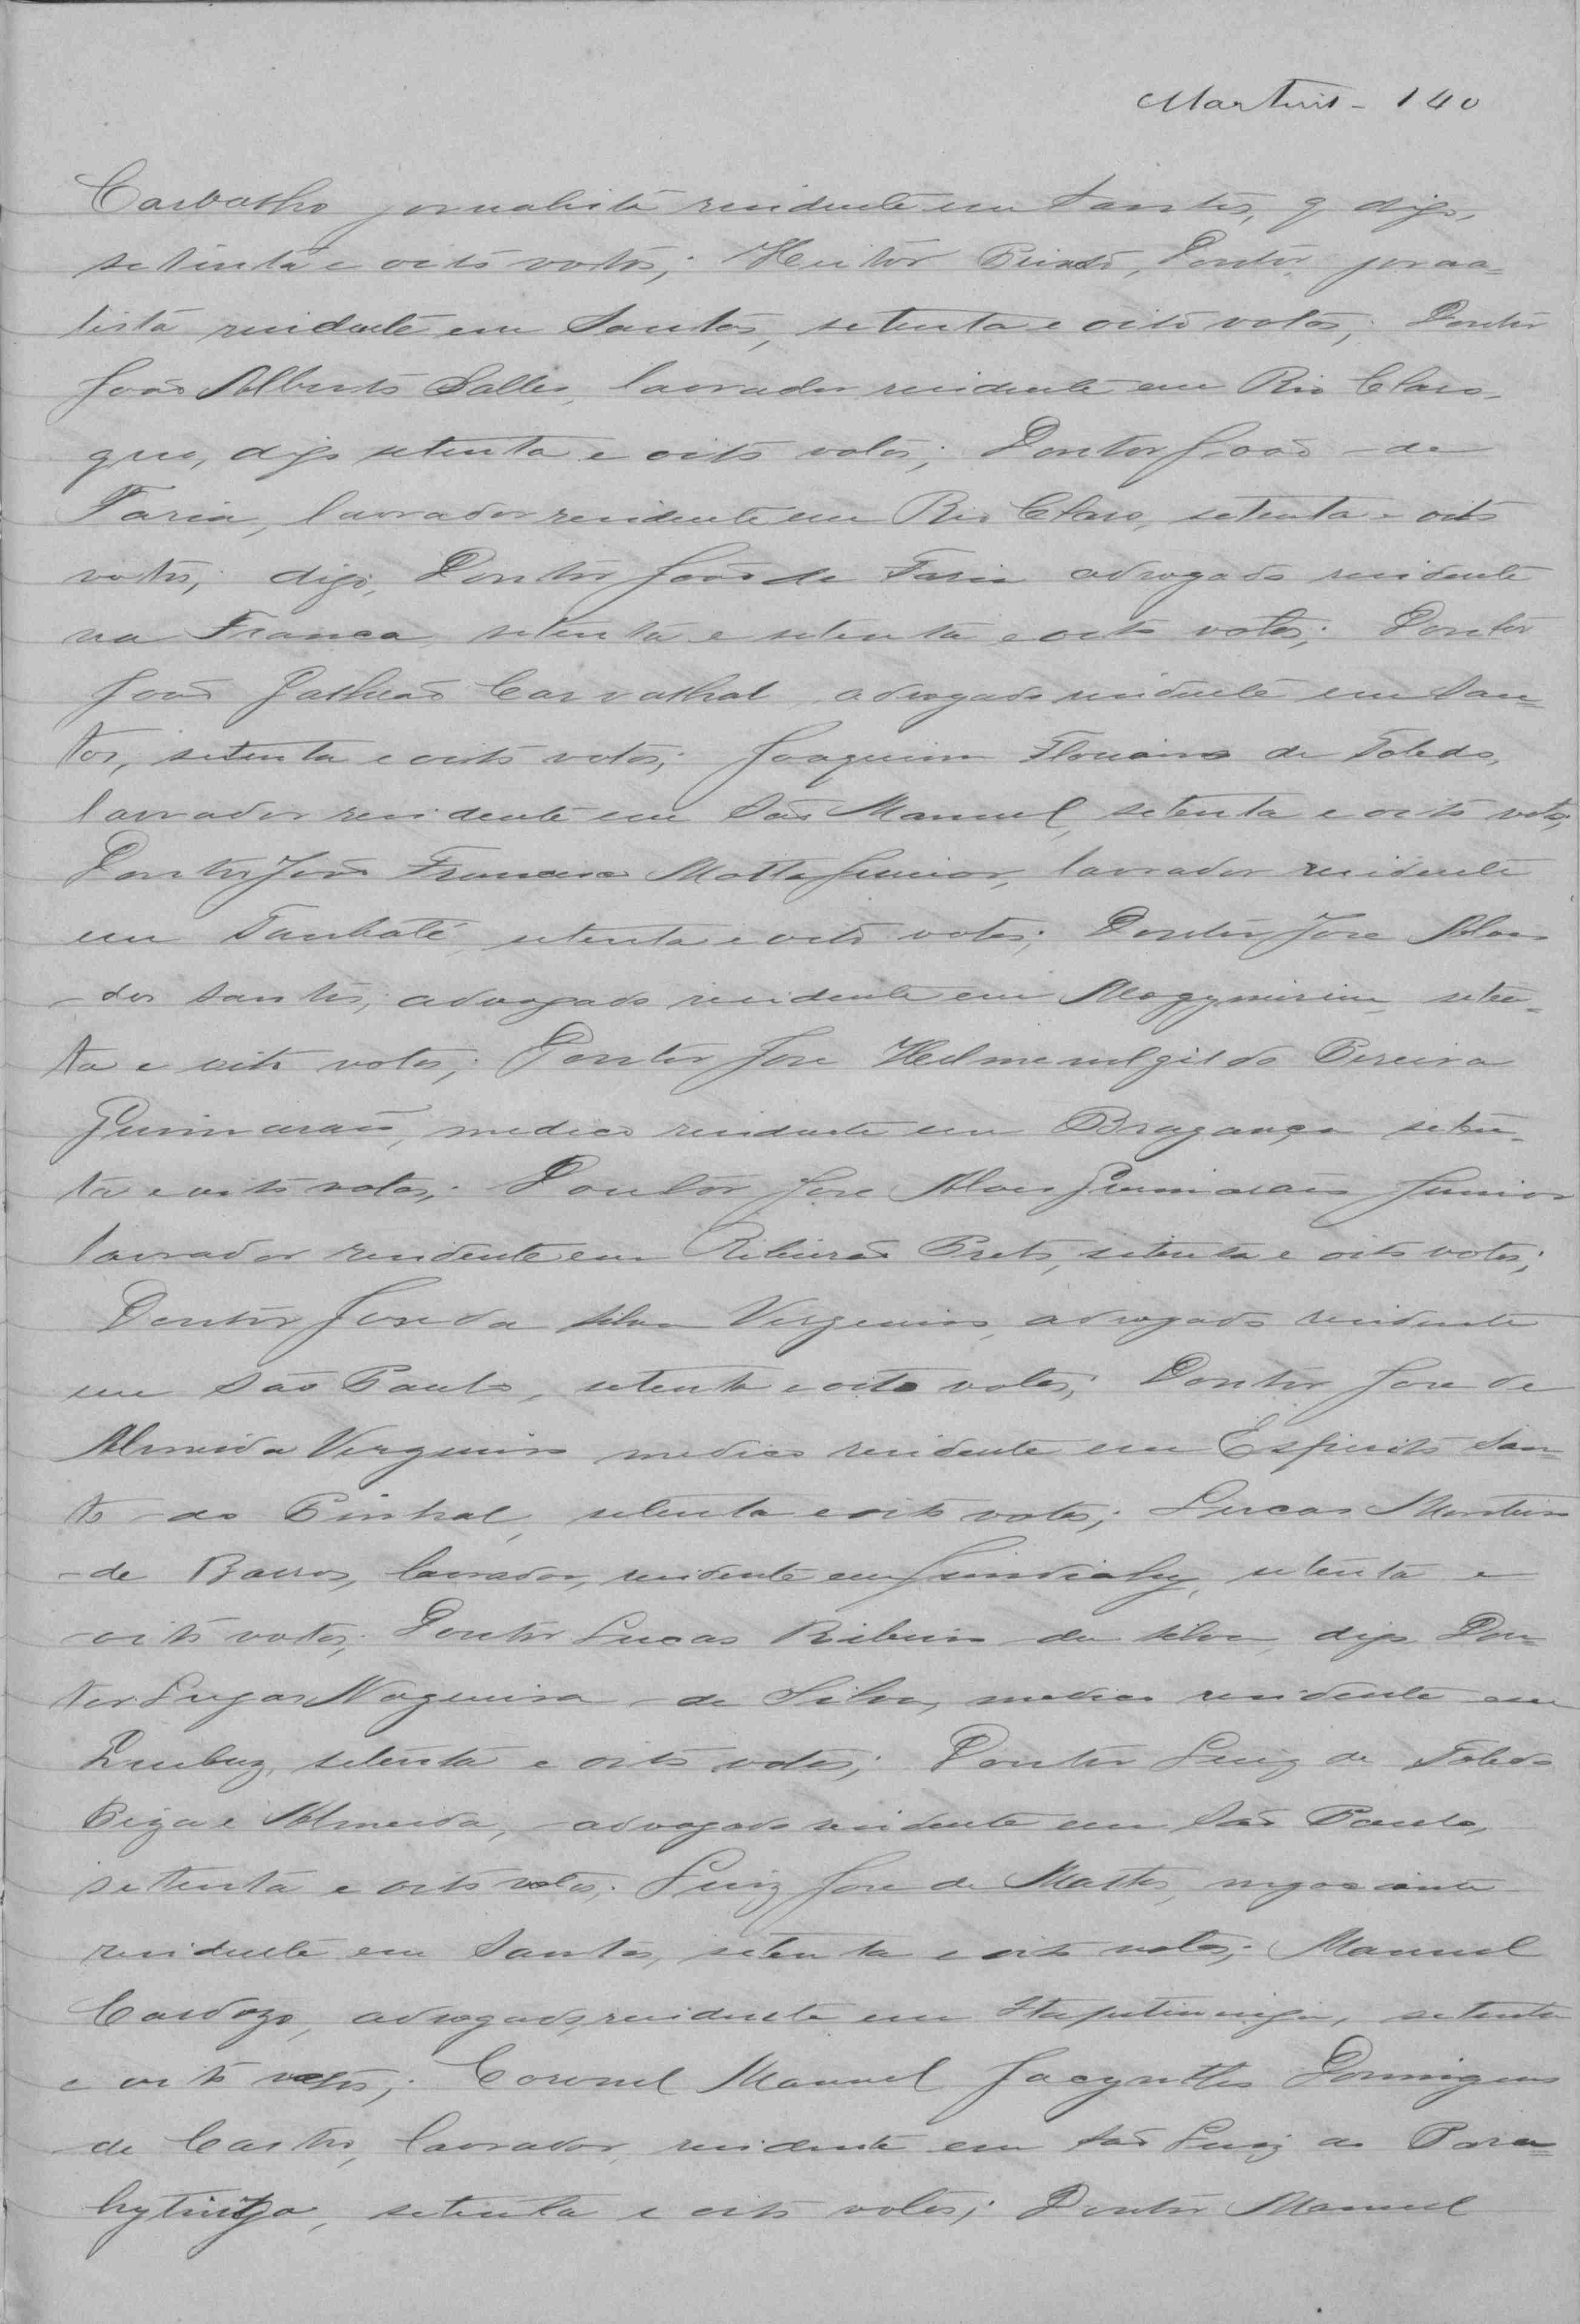 Martins - 140
Carvalho jornalista residente em Santos, q digo,
setenta e oito votos; Heitor Peixoto, Doutor, jorna=
lista residente em Santos, setenta e oito votos; Doutor
João Alberto Salles, lavrador residente em Rio Claro,
que, digo setenta e oito votos; Doutor João de
Faria, lavrador residente em Rio Claro, setenta e oito
votos; digo, Doutor João de Faria advogado residente
na Franca setenta e setenta e oito votos; Doutor
João Galheão Carvalhal, advogado residente em San=
tos, setenta e oito votos; Joaquim Floriano de Toledo,
lavrador residente em São Manuel, setenta e oito votos;
Doutor João Francisco Motta Junior, lavrador residente
em Taubaté, setenta e oito votos; Doutor José Alves
dos Santos, advogado residente em Mogymirim, seten=
ta e oito votos; Doutor José Helmenelgildo Pereira
Guimarães, medico residente em Bragança seten=
ta e oito votos; Doutor José Alves Guimarães Junior
lavrador residente em Ribeirão Preto, setenta e oito votos;
Doutor José da Silva Vergueiro, advogado residente
em São Paulo, setenta e oito votos; Doutor José de
Almeida Vergueiro medico residente em Espirito San=
to do Pinhal, setenta e oito votos; Lucas Monteiro
de Barros, lavrador, residente em Jundiahy, setenta e
oito votos; Doutor Lucas Ribeiro da Silva, digo Dou=
tor Lucas Nogueira da Silva, medico residente em
Queluz, setenta e oito votos; Doutor Luiz de Toledo
Piza e Almeida, advogado residente em São Paulo,
setenta e oito votos; Luiz José de Mattos, negociante
residente em Santos, setenta e oito votos; Manuel
Cardozo, advogado, residente em Itapetininga, setenta
e oito votos; Coronel Manuel Jacyntho Domingues
de Castro, lavrador, residente em São Luiz do Para=
hytinga, setenta e oito votos; Doutor Manuel